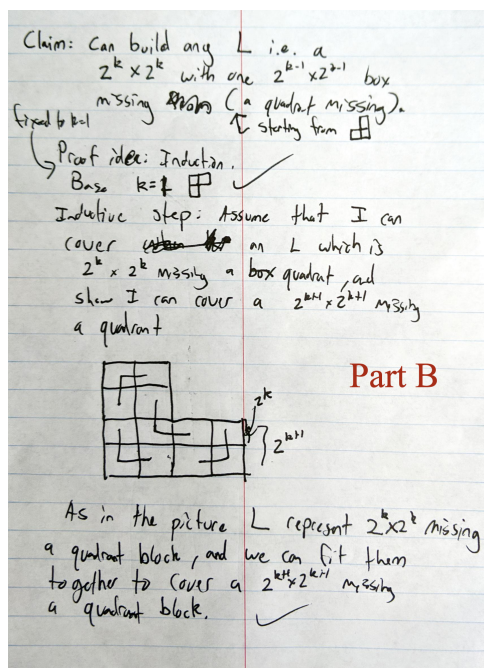 Claim: Can build any L i.e. a
2^k × 2^k with one 2^{k-1} × 2^{k-1} box
missing (a quadrant missing).
starting from
fixed to k=1
Proof idea: Induction.
Base k=1
Inductive step: Assume that I can
cover an L which is
2^k × 2^k missing a box quadrat, and
show I can cover a 2^{k+1} × 2^{k+1} missing
a quadrant
Part B
2^k
2^{k+1}
As in the picture L represent 2^k × 2^k missing
a quadrant block, and we can fit them
together to cover a 2^{k+1} × 2^{k+1} missing
a quadrant block.